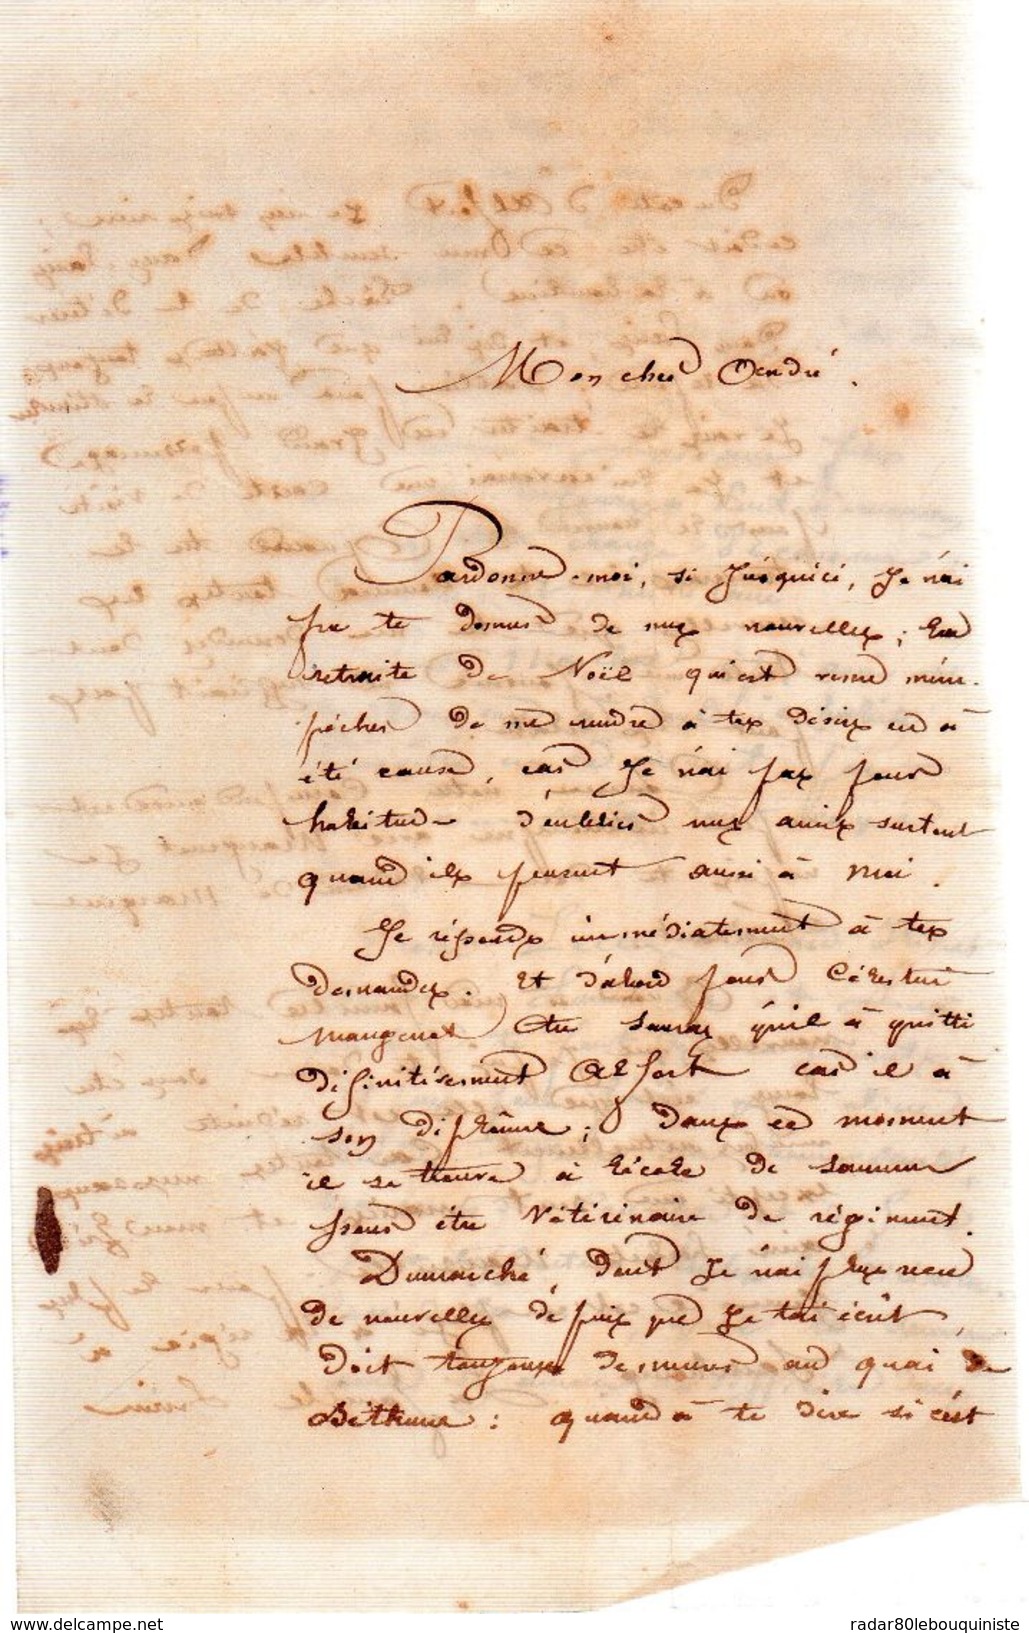 Mon cher André.
Pardonne-moi, si Jusqu'ici, Je n'ai
pu te donner de mes nouvelles; la
retraite de Noël qui est venue m'em-
pêcher de me rendre à tes désirs en a
été cause, car Je n'ai pas pour
habitude d'oublier mes amis surtout
quand ils pensent aussi à moi.
Je réponds immédiatement à tes
demandes. Et d'abord pour Célestin
Mangenet tu sauras qu'il à quitté
définitivement Alfort car il a
son diplôme; dans ce moment
il se trouve à l'école de Saumur
pour être Vétérinaire de régiment.
Dumouché, dont Je n'ai plus reçu
de nouvelles dépuis que Je t'ai écrit,
doit toujours demeurer au quai de
Béthune: quand à te dire si c'est
www.delcampe.net
radar80lebouquiniste